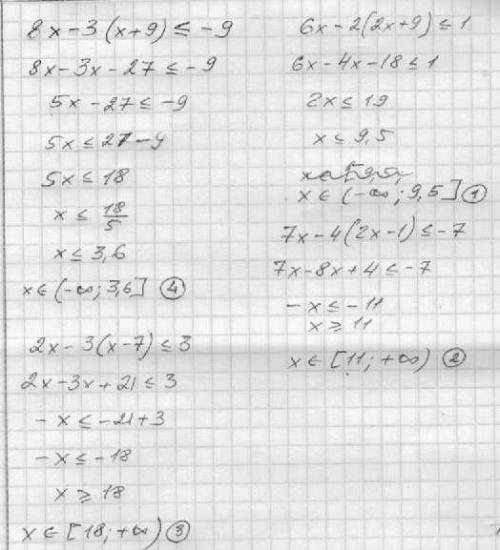 8x-3(x+9) ≤ -9
8x-3x-27 ≤ -9
5x-27 ≤ -9
5x ≤ 27-9
5x ≤ 18
x ≤ 18/5
x ≤ 3,6
x ∈ (-∞; 3,6] ④
2x-3(x-7) ≤ 3
2x-3x+21 ≤ 3
-x ≤ -21+3
-x ≤ -18
x ≥ 18
x ∈ [18; +∞) ③
6x-2(2x+9) ≤ 1
6x-4x-18 ≤ 1
2x ≤ 19
x ≤ 9,5
x ∈ (-∞; 9,5] ①
7x-4(2x-1) ≤ -7
7x-8x+4 ≤ -7
-x ≤ -11
x ≥ 11
x ∈ [11; +∞) ②